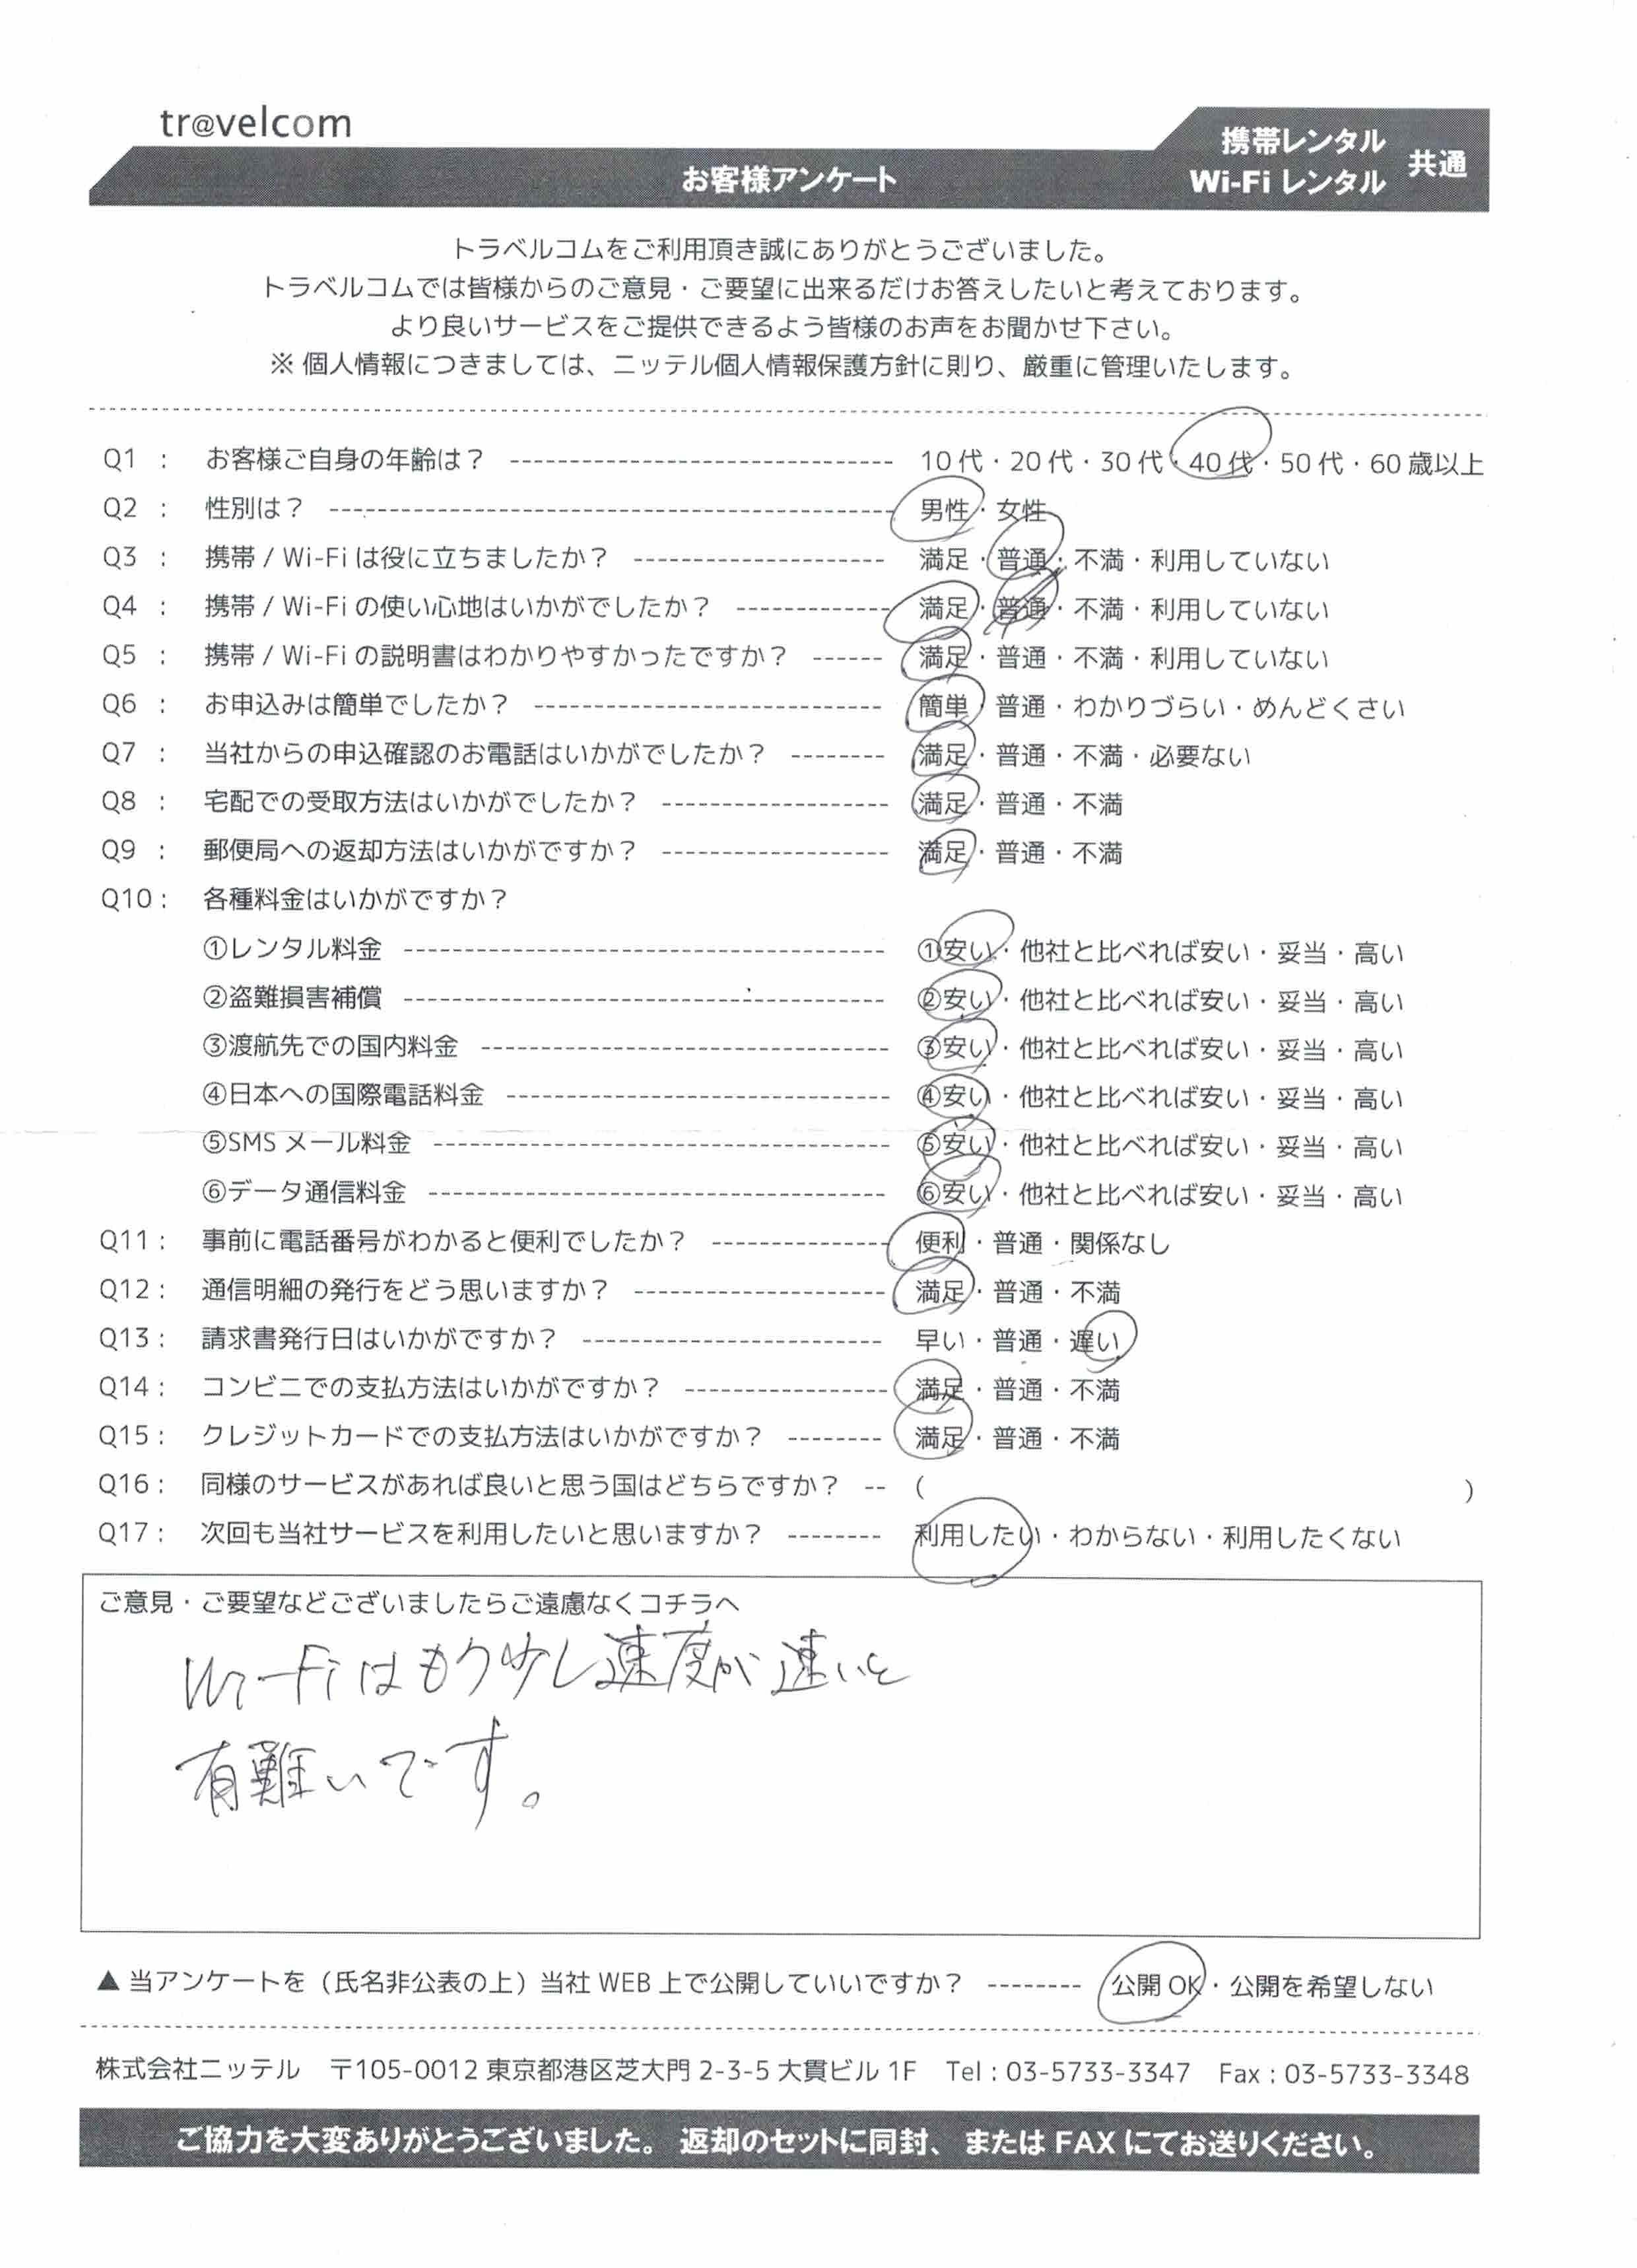 tr@velcom
お客様アンケート
携帯レンタル
Wi-Fi レンタル
共通
トラベルコムをご利用頂き誠にありがとうございました。
トラベルコムでは皆様からのご意見・ご要望に出来るだけお答えしたいと考えております。
より良いサービスをご提供できるよう皆様のお声をお聞かせ下さい。
※ 個人情報につきましては、ニッテル個人情報保護方針に則り、厳重に管理いたします。
Q1 : お客様ご自身の年齢は？ 10代・20代・30代・40代・50代・60歳以上
Q2 : 性別は？ 男性・女性
Q3 : 携帯 / Wi-Fi は役に立ちましたか？ 満足・普通・不満・利用していない
Q4 : 携帯 / Wi-Fi の使い心地はいかがでしたか？ 満足・普通・不満・利用していない
Q5 : 携帯 / Wi-Fi の説明書はわかりやすかったですか？ 満足・普通・不満・利用していない
Q6 : お申込みは簡単でしたか？ 簡単・普通・わかりづらい・めんどくさい
Q7 : 当社からの申込確認のお電話はいかがでしたか？ 満足・普通・不満・必要ない
Q8 : 宅配での受取方法はいかがでしたか？ 満足・普通・不満
Q9 : 郵便局への返却方法はいかがですか？ 満足・普通・不満
Q10 : 各種料金はいかがですか？
①レンタル料金 ①安い・他社と比べれば安い・妥当・高い
②盗難損害補償 ②安い・他社と比べれば安い・妥当・高い
③渡航先での国内料金 ③安い・他社と比べれば安い・妥当・高い
④日本への国際電話料金 ④安い・他社と比べれば安い・妥当・高い
⑤SMS メール料金 ⑤安い・他社と比べれば安い・妥当・高い
⑥データ通信料金 ⑥安い・他社と比べれば安い・妥当・高い
Q11 : 事前に電話番号がわかると便利でしたか？ 便利・普通・関係なし
Q12 : 通信明細の発行をどう思いますか？ 満足・普通・不満
Q13 : 請求書発行日はいかがですか？ 早い・普通・遅い
Q14 : コンビニでの支払方法はいかがですか？ 満足・普通・不満
Q15 : クレジットカードでの支払方法はいかがですか？ 満足・普通・不満
Q16 : 同様のサービスがあれば良いと思う国はどちらですか？ ( )
Q17 : 次回も当社サービスを利用したいと思いますか？ 利用したい・わからない・利用したくない
ご意見・ご要望などございましたらご遠慮なくコチラへ
Wi-Fiはもう少し速度が速いと
有難いです。
▲ 当アンケートを（氏名非公表の上）当社 WEB 上で公開していいですか？ 公開 OK・公開を希望しない
株式会社ニッテル 〒105-0012 東京都港区芝大門 2-3-5 大貫ビル 1F Tel : 03-5733-3347 Fax : 03-5733-3348
ご協力を大変ありがとうございました。 返却のセットに同封、 または FAX にてお送りください。